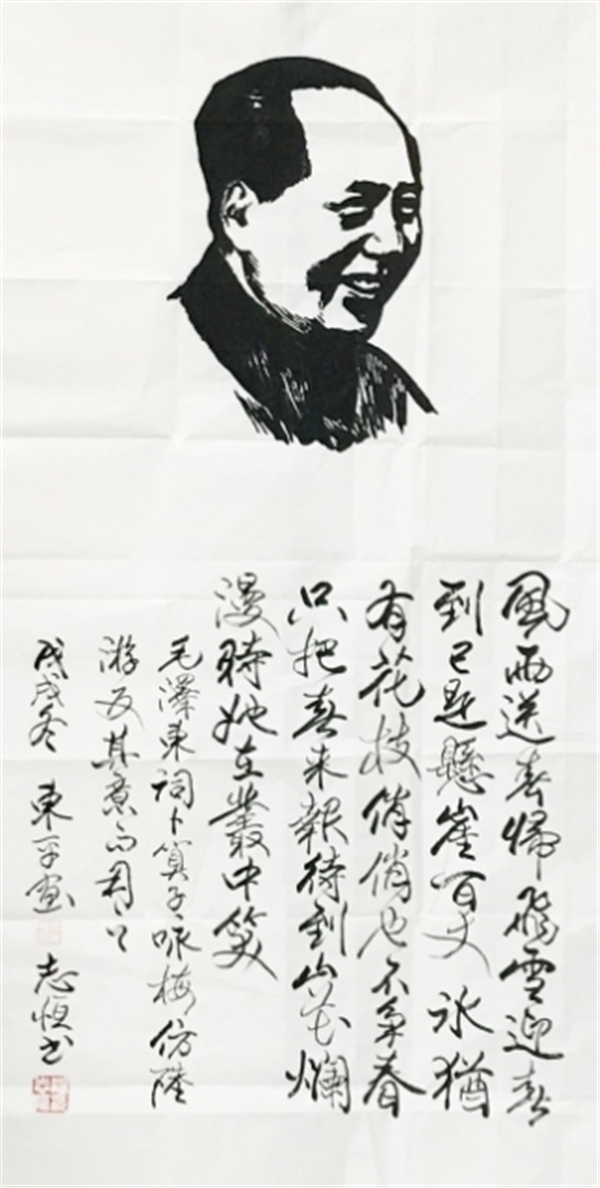 風雨送春歸飛雪迎春
到已是懸崖百丈冰猶
有花枝俏俏也不爭春
只把春來報待到山花爛
漫時她在叢中笑
毛澤東詞卜算子咏梅仿陸
游反其意而用之
戊戌冬 東平画 志恒书